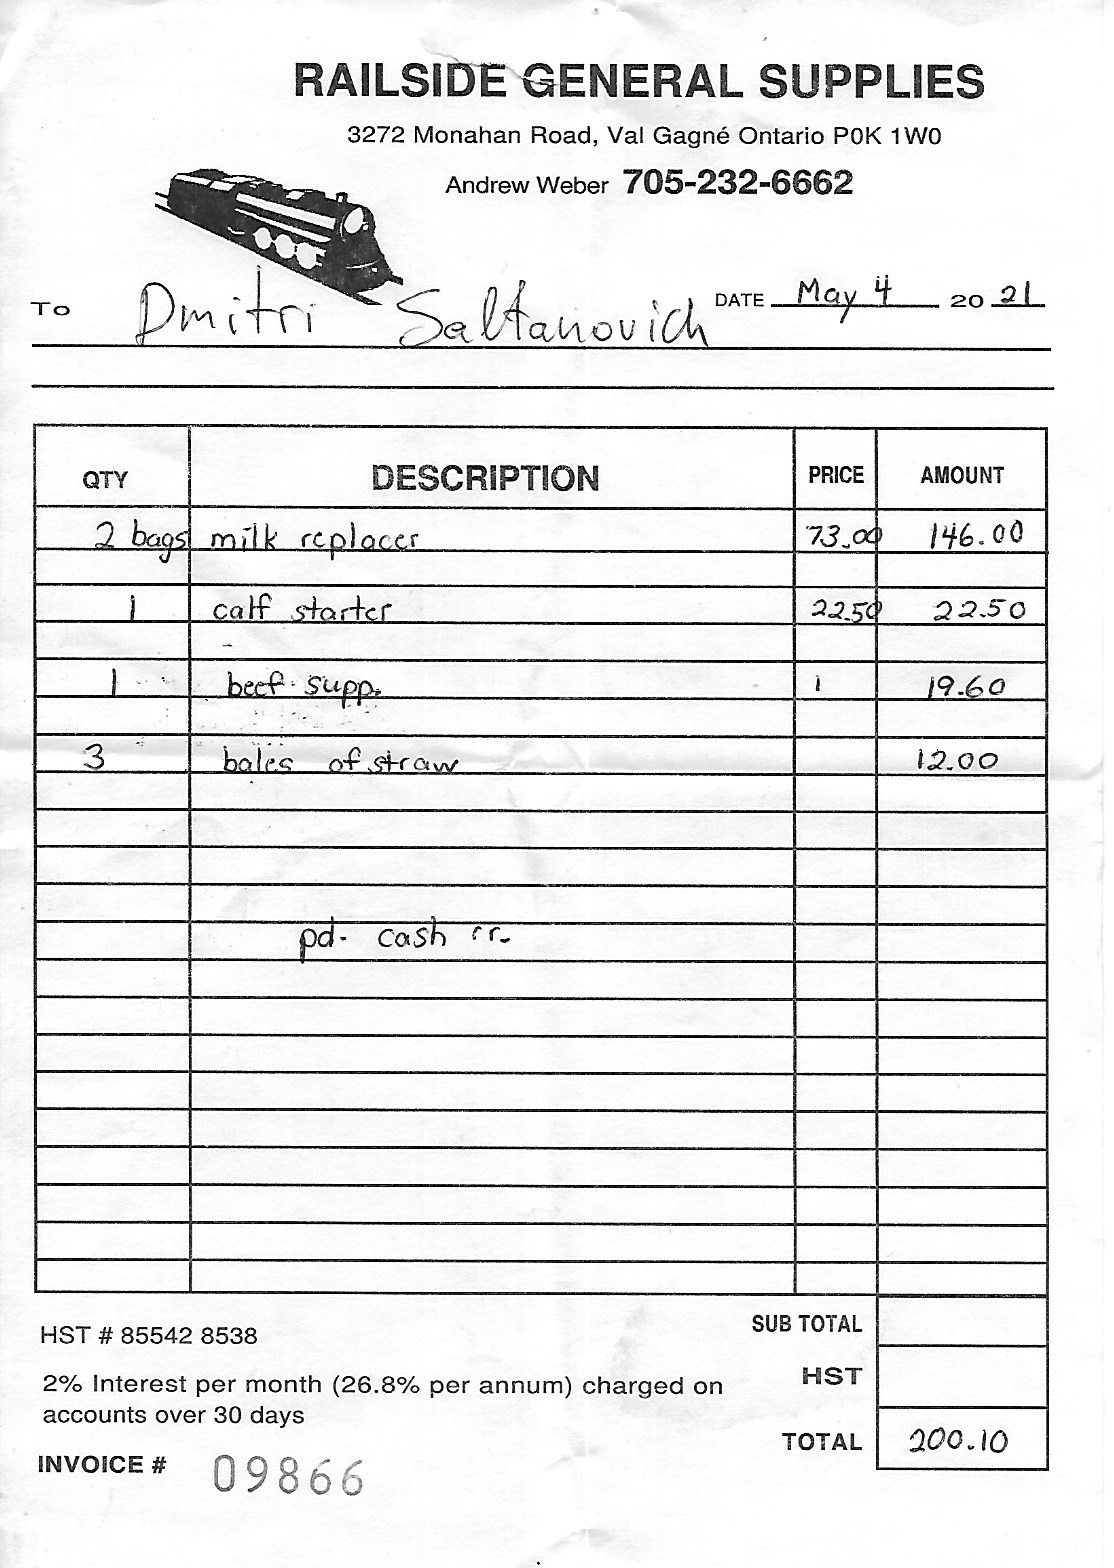 RAILSIDE GENERAL SUPPLIES
3272 Monahan Road, Val Gagné Ontario P0K 1W0
Andrew Weber 705-232-6662
TO Dmitri Saltanovich DATE May 4 20 21
QTY DESCRIPTION PRICE AMOUNT
2 bags milk replacer 73.00 146.00
1 calf starter 22.50 22.50
1 beef supp. 19.60
3 bales of straw 12.00
pd. cash
SUB TOTAL
HST # 85542 8538
HST
2% Interest per month (26.8% per annum) charged on
accounts over 30 days
TOTAL 200.10
INVOICE # 09866